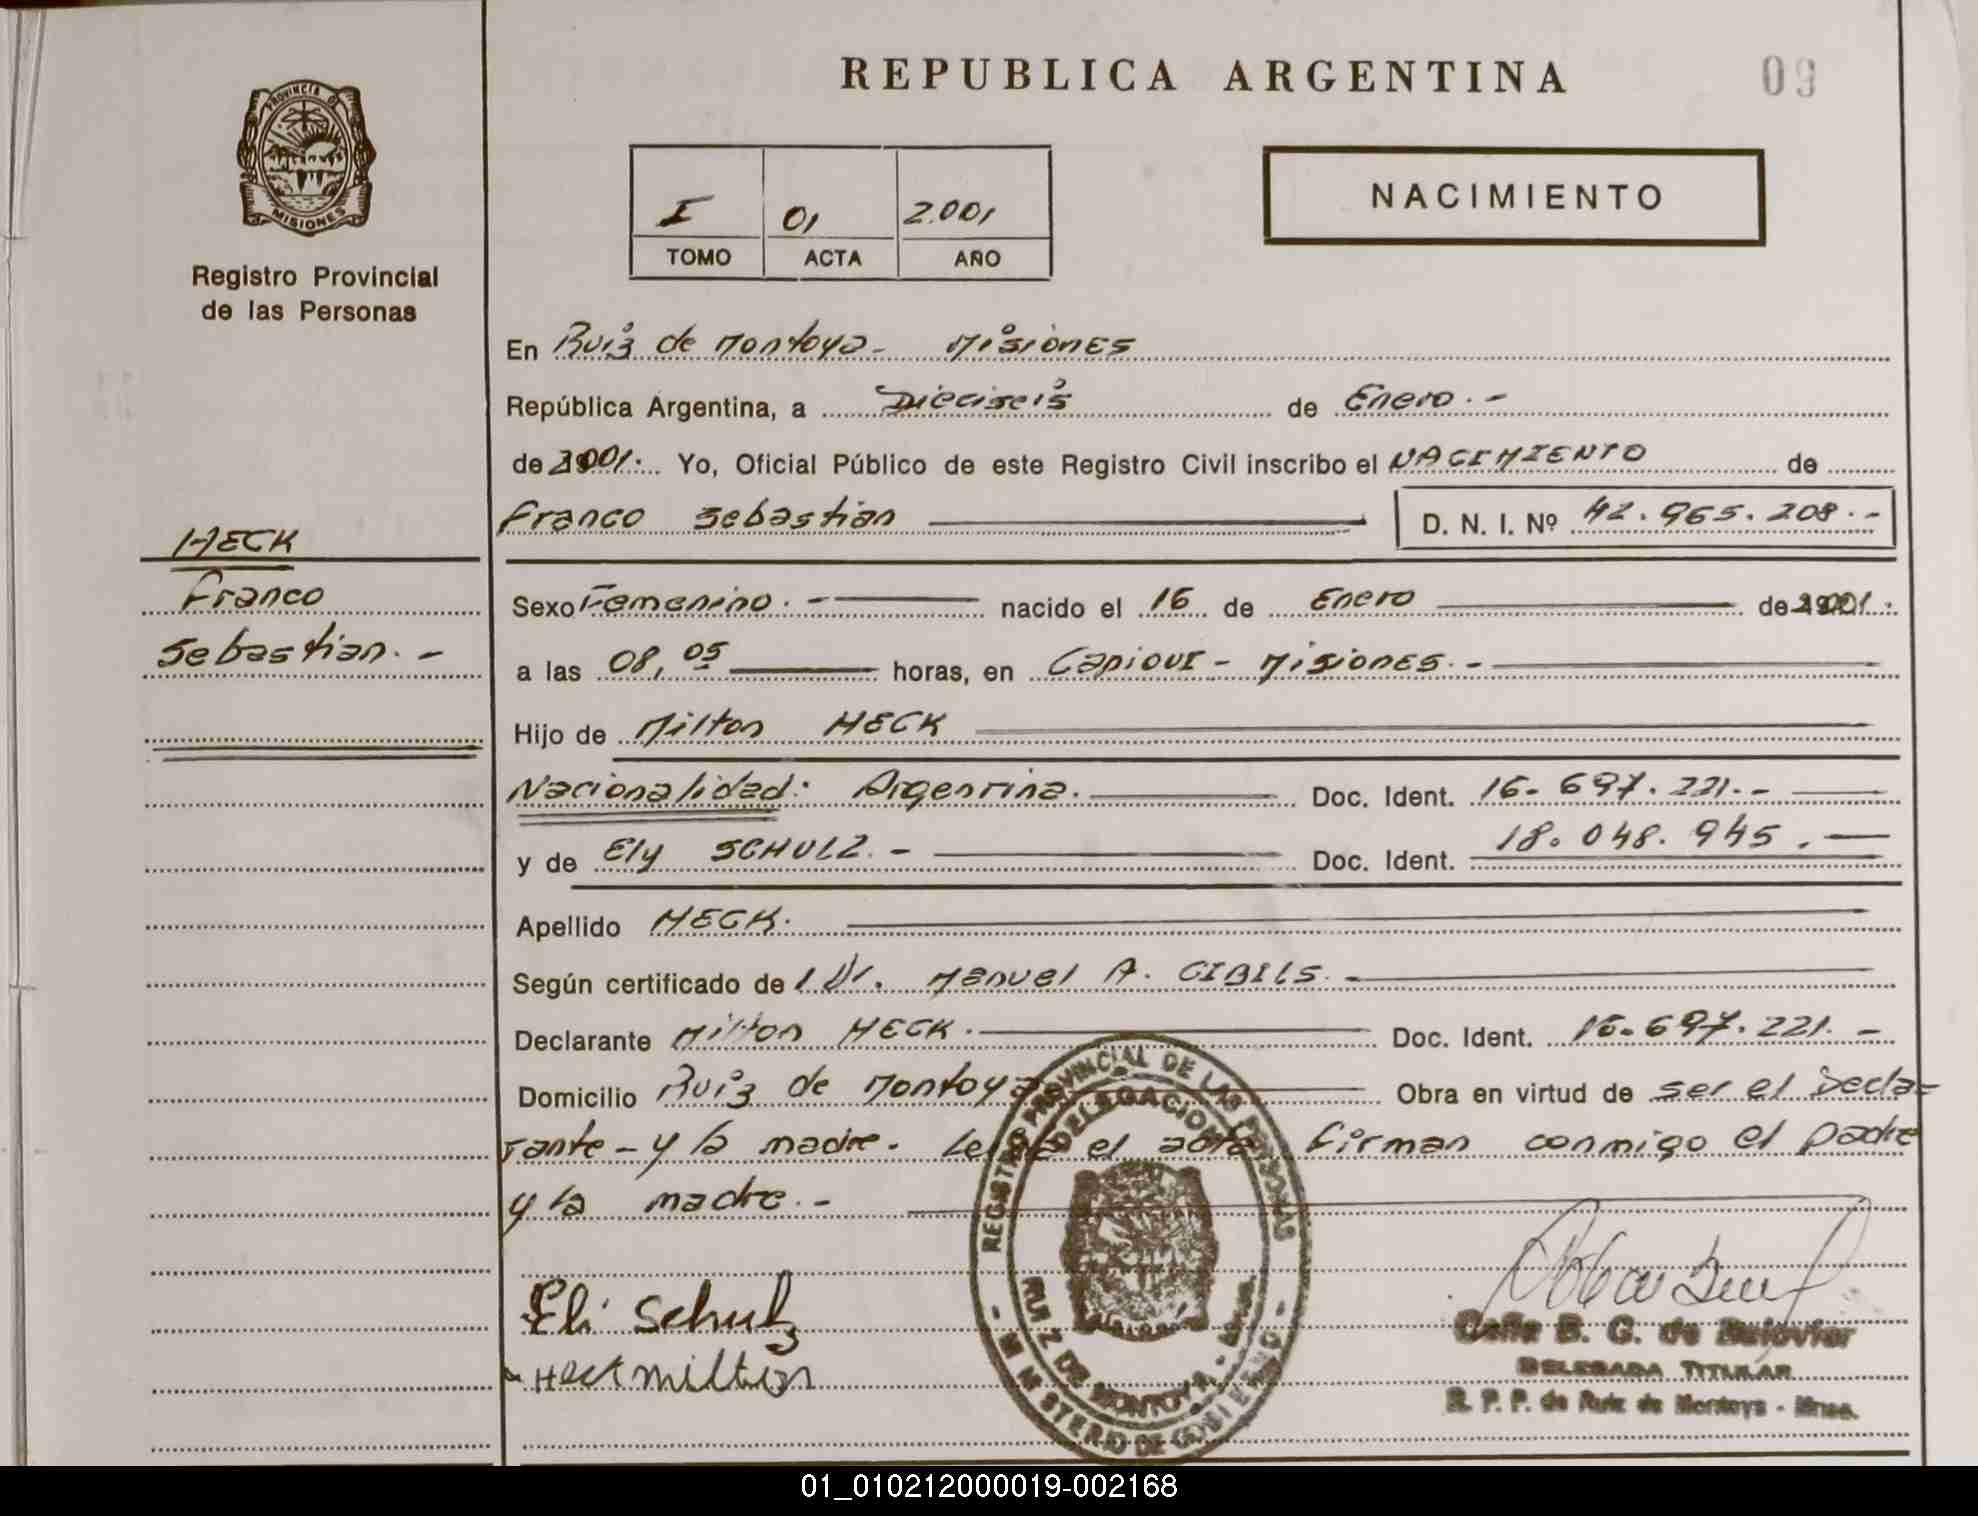 REPUBLICA ARGENTINA
09
PROVINCIA DE
MISIONES
Registro Provincial
de las Personas
I 01 2.001
TOMO ACTA AÑO
NACIMIENTO
En Ruiz de Montoya - Misiones
República Argentina, a Dieciseis de Enero.-
de 2001. Yo, Oficial Público de este Registro Civil inscribo el NACIMIENTO de
Franco Sebastian D. N. I. Nº 42.965.208.-
HECK
Franco
Sebastian.-
Sexo Femenino.- nacido el 16 de Enero de 2001.
a las 08,05 horas, en Capiovi - Misiones.-
Hijo de Milton HECK
Nacionalidad: Argentina. Doc. Ident. 16.697.221.-
y de Ely SCHULZ.- Doc. Ident. 18.048.945.-
Apellido HECK.
Según certificado de l Dr. Manuel A. CIBILS.-
Declarante Milton HECK.- Doc. Ident. 16.697.221.-
Domicilio Ruiz de Montoya Obra en virtud de ser el Decla=
rante - y la madre. Leida el acta firman conmigo el padre
y la madre.-
REGISTRO PROVINCIAL DE LAS PERSONAS
DELEGACION
RUIZ DE MONTOYA
- MINISTERIO DE GOBIERNO -
Eli Schulz
Heck milton
B. G. de
DELEGADA TITULAR
R. P. P. de Ruiz de Montoya - Mnes.
01_010212000019-002168